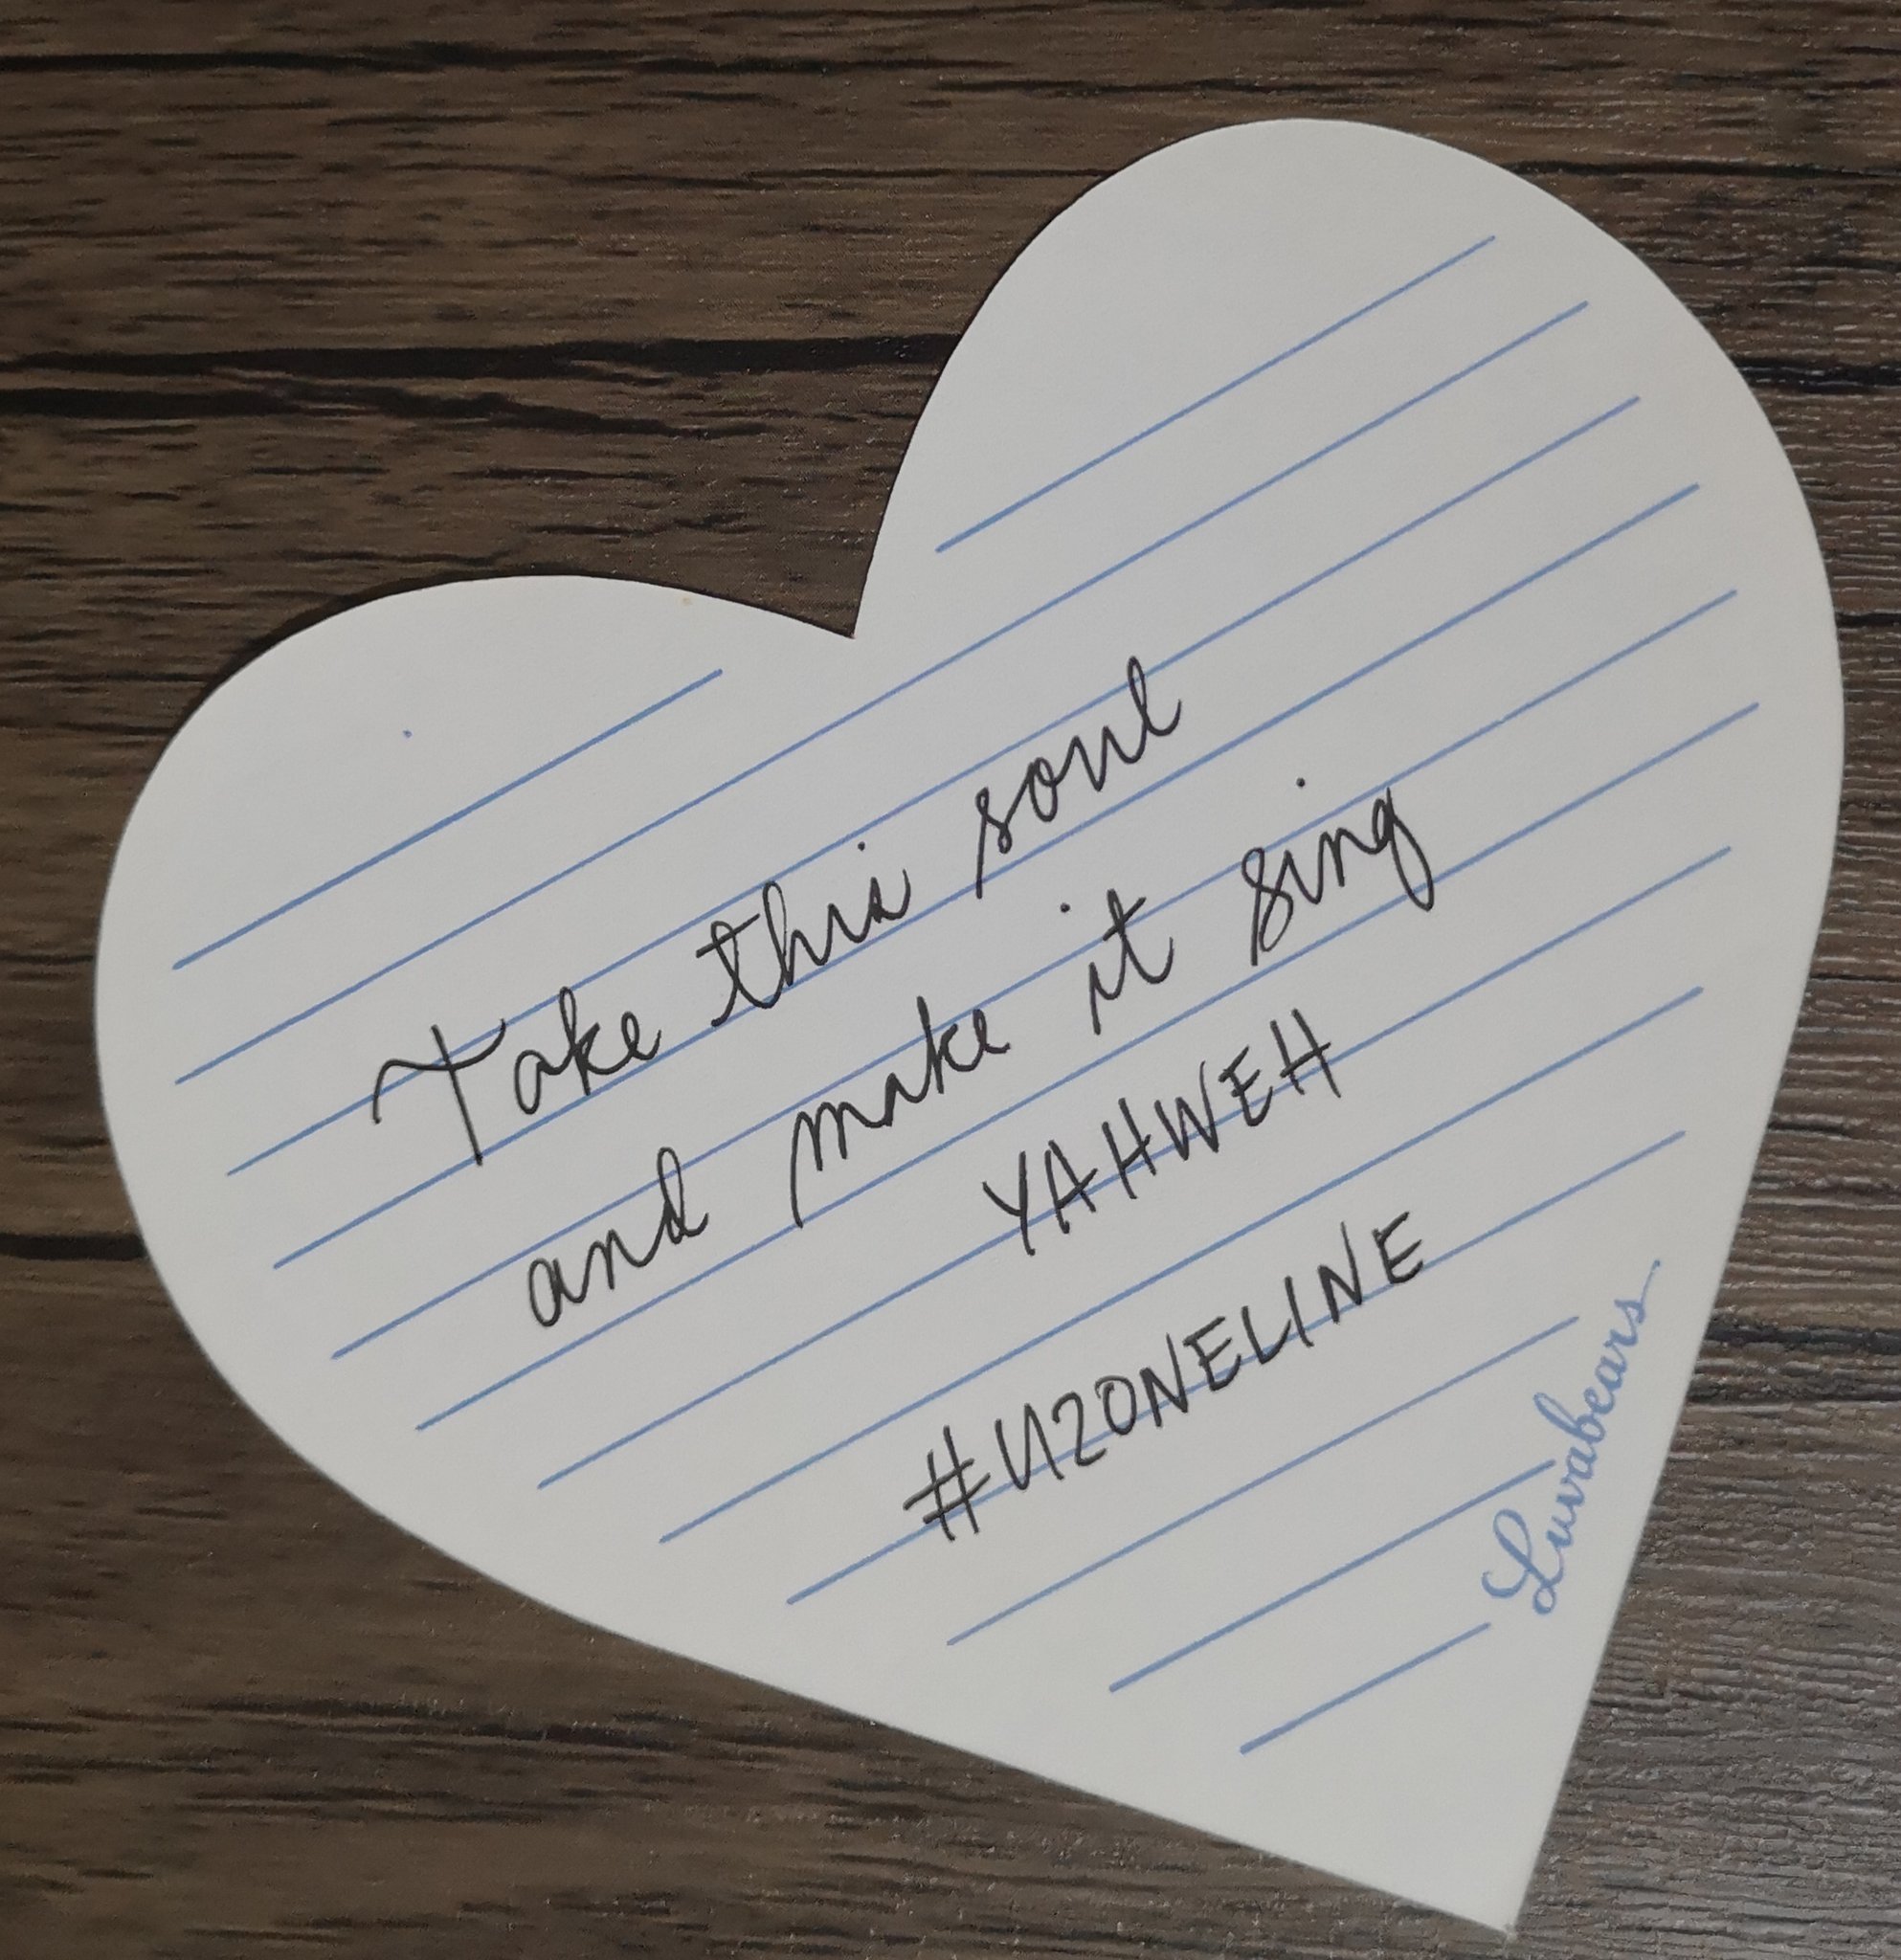 Take this soul
and make it sing
YAHWEH
#U2ONELINE
Luvabears